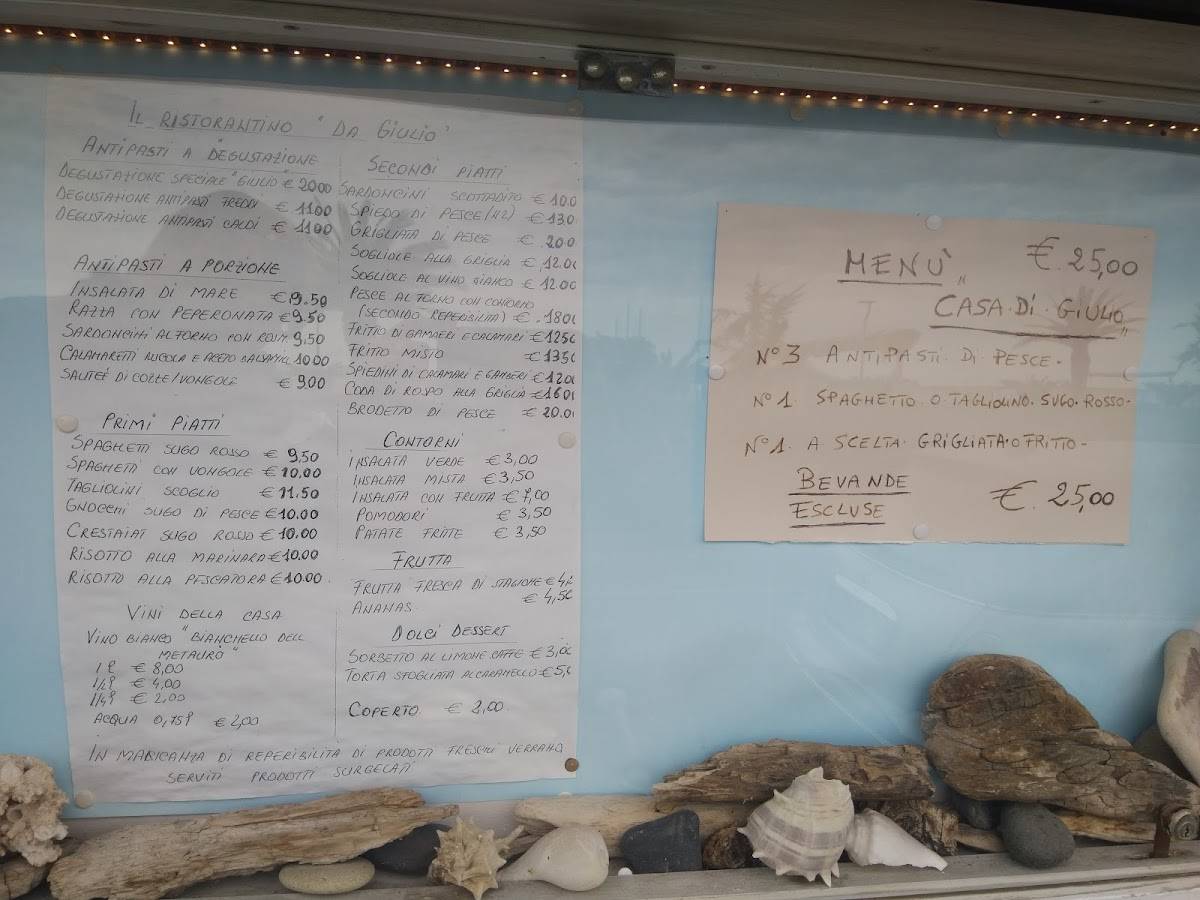 IL RISTORANTINO "DA GIULIO"
ANTIPASTI A DEGUSTAZIONE
DEGUSTAZIONE SPECIALE "GIULIO" € 20.00
DEGUSTAZIONE ANTIPASTI FREDDI € 11.00
DEGUSTAZIONE ANTIPASTI CALDI € 11.00
ANTIPASTI A PORZIONE
INSALATA DI MARE € 9.50
RAZZA CON PEPERONATA € 9.50
SARDONCINI AL FORNO CON ROSM. 9,50
CALAMARETTI RUCOLA E ACETO BALSAMICO 10.00
SAUTEÉ DI COZZE/VONGOLE € 9.00
PRIMI PIATTI
SPAGHETTI SUGO ROSSO € 9,50
SPAGHETTI CON VONGOLE € 10.00
TAGLIOLINI SCOGLIO € 11.50
GNOCCHI SUGO DI PESCE € 10.00
CRESTAIAT SUGO ROSSO € 10.00
RISOTTO ALLA MARINARA € 10.00
RISOTTO ALLA PESCATORA € 10.00
VINI DELLA CASA
VINO BIANCO "BIANCHELLO DEL
METAURO"
1 l € 8,00
1/2 l € 4,00
1/4 l € 2,00
ACQUA 0,75 l € 2,00
SECONDI PIATTI
SARDONCINI SCOTTADITO € 10.0
SPIEDO DI PESCE (N2) € 13.0
GRIGLIATA DI PESCE € 20.0
SOGLIOLE ALLA GRIGLIA € 12.00
SOGLIOLE AL VINO BIANCO € 12.00
PESCE AL FORNO CON CONTORNO
(SECONDO REPERIBILITA) € 18.00
FRITTO DI GAMBERI E CALAMARI € 12.50
FRITTO MISTO € 13.50
SPIEDINI DI CALAMARI E GAMBERI € 12.00
CODA DI ROSPO ALLA GRIGLIA € 16.00
BRODETTO DI PESCE € 20.00
CONTORNI
INSALATA VERDE € 3,00
INSALATA MISTA € 3,50
INSALATA CON FRUTTA € 7,00
POMODORI € 3,50
PATATE FRITTE € 3,50
FRUTTA
FRUTTA FRESCA DI STAGIONE €
ANANAS € 4,50
DOLCI DESSERT
SORBETTO AL LIMONE CAFFE € 3,00
TORTA SFOGLIATA AL CARAMELLO €
COPERTO € 2,00
IN MANCANZA DI REPERIBILITA DI PRODOTTI FRESCHI VERRANO
SERVITI PRODOTTI SURGELATI
MENÙ € 25,00
"CASA DI GIULIO"
N° 3 ANTIPASTI DI PESCE -
N° 1 SPAGHETTO O TAGLIOLINO SUGO ROSSO -
N° 1 A SCELTA GRIGLIATA O FRITTO -
BEVANDE
ESCLUSE € 25,00